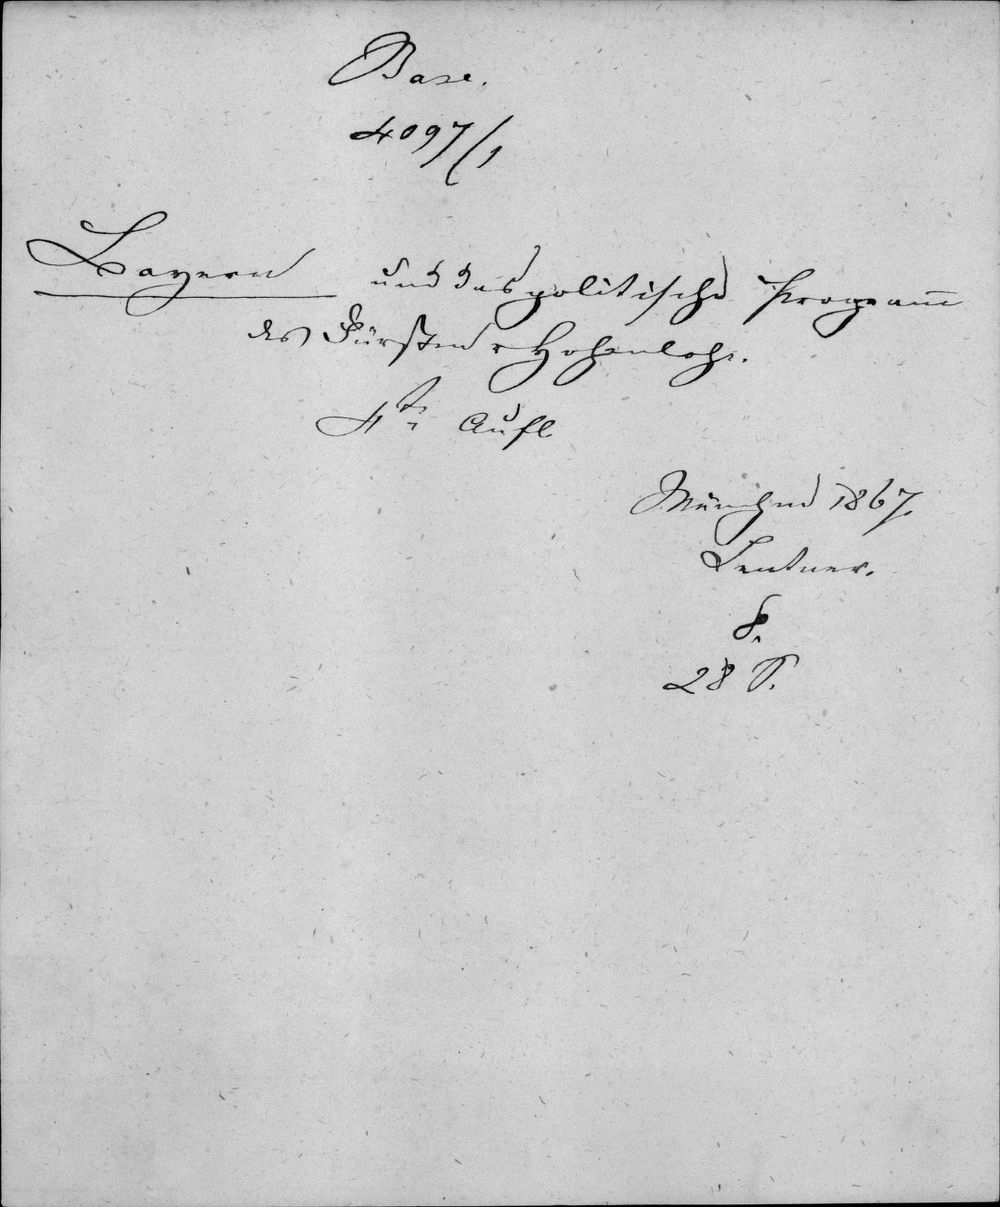 Bavar.
4097/1
Bayern und das politische Program̅
des Fürsten v Hohenlohe.
4te Aufl
München 1867.
Lentner.
8.
28 S.